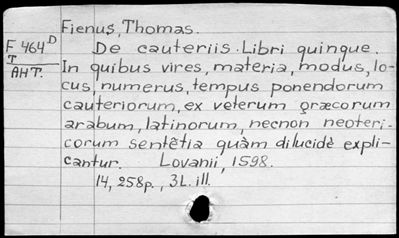 Fienus, Thomas.
F 464 D
T
АНТ.
De cauteriis. Libri quinque.
In quibus vires, materia, modus, lo-
cus, numerus, tempus ponendorum
cauteriorum, ex veterum græcorum
arabum, latinorum, necnon neoteri-
corum sentētia quàm dilucidè expli-
cantur. Lovanii, 1598.
14, 258p., 3L. ill.